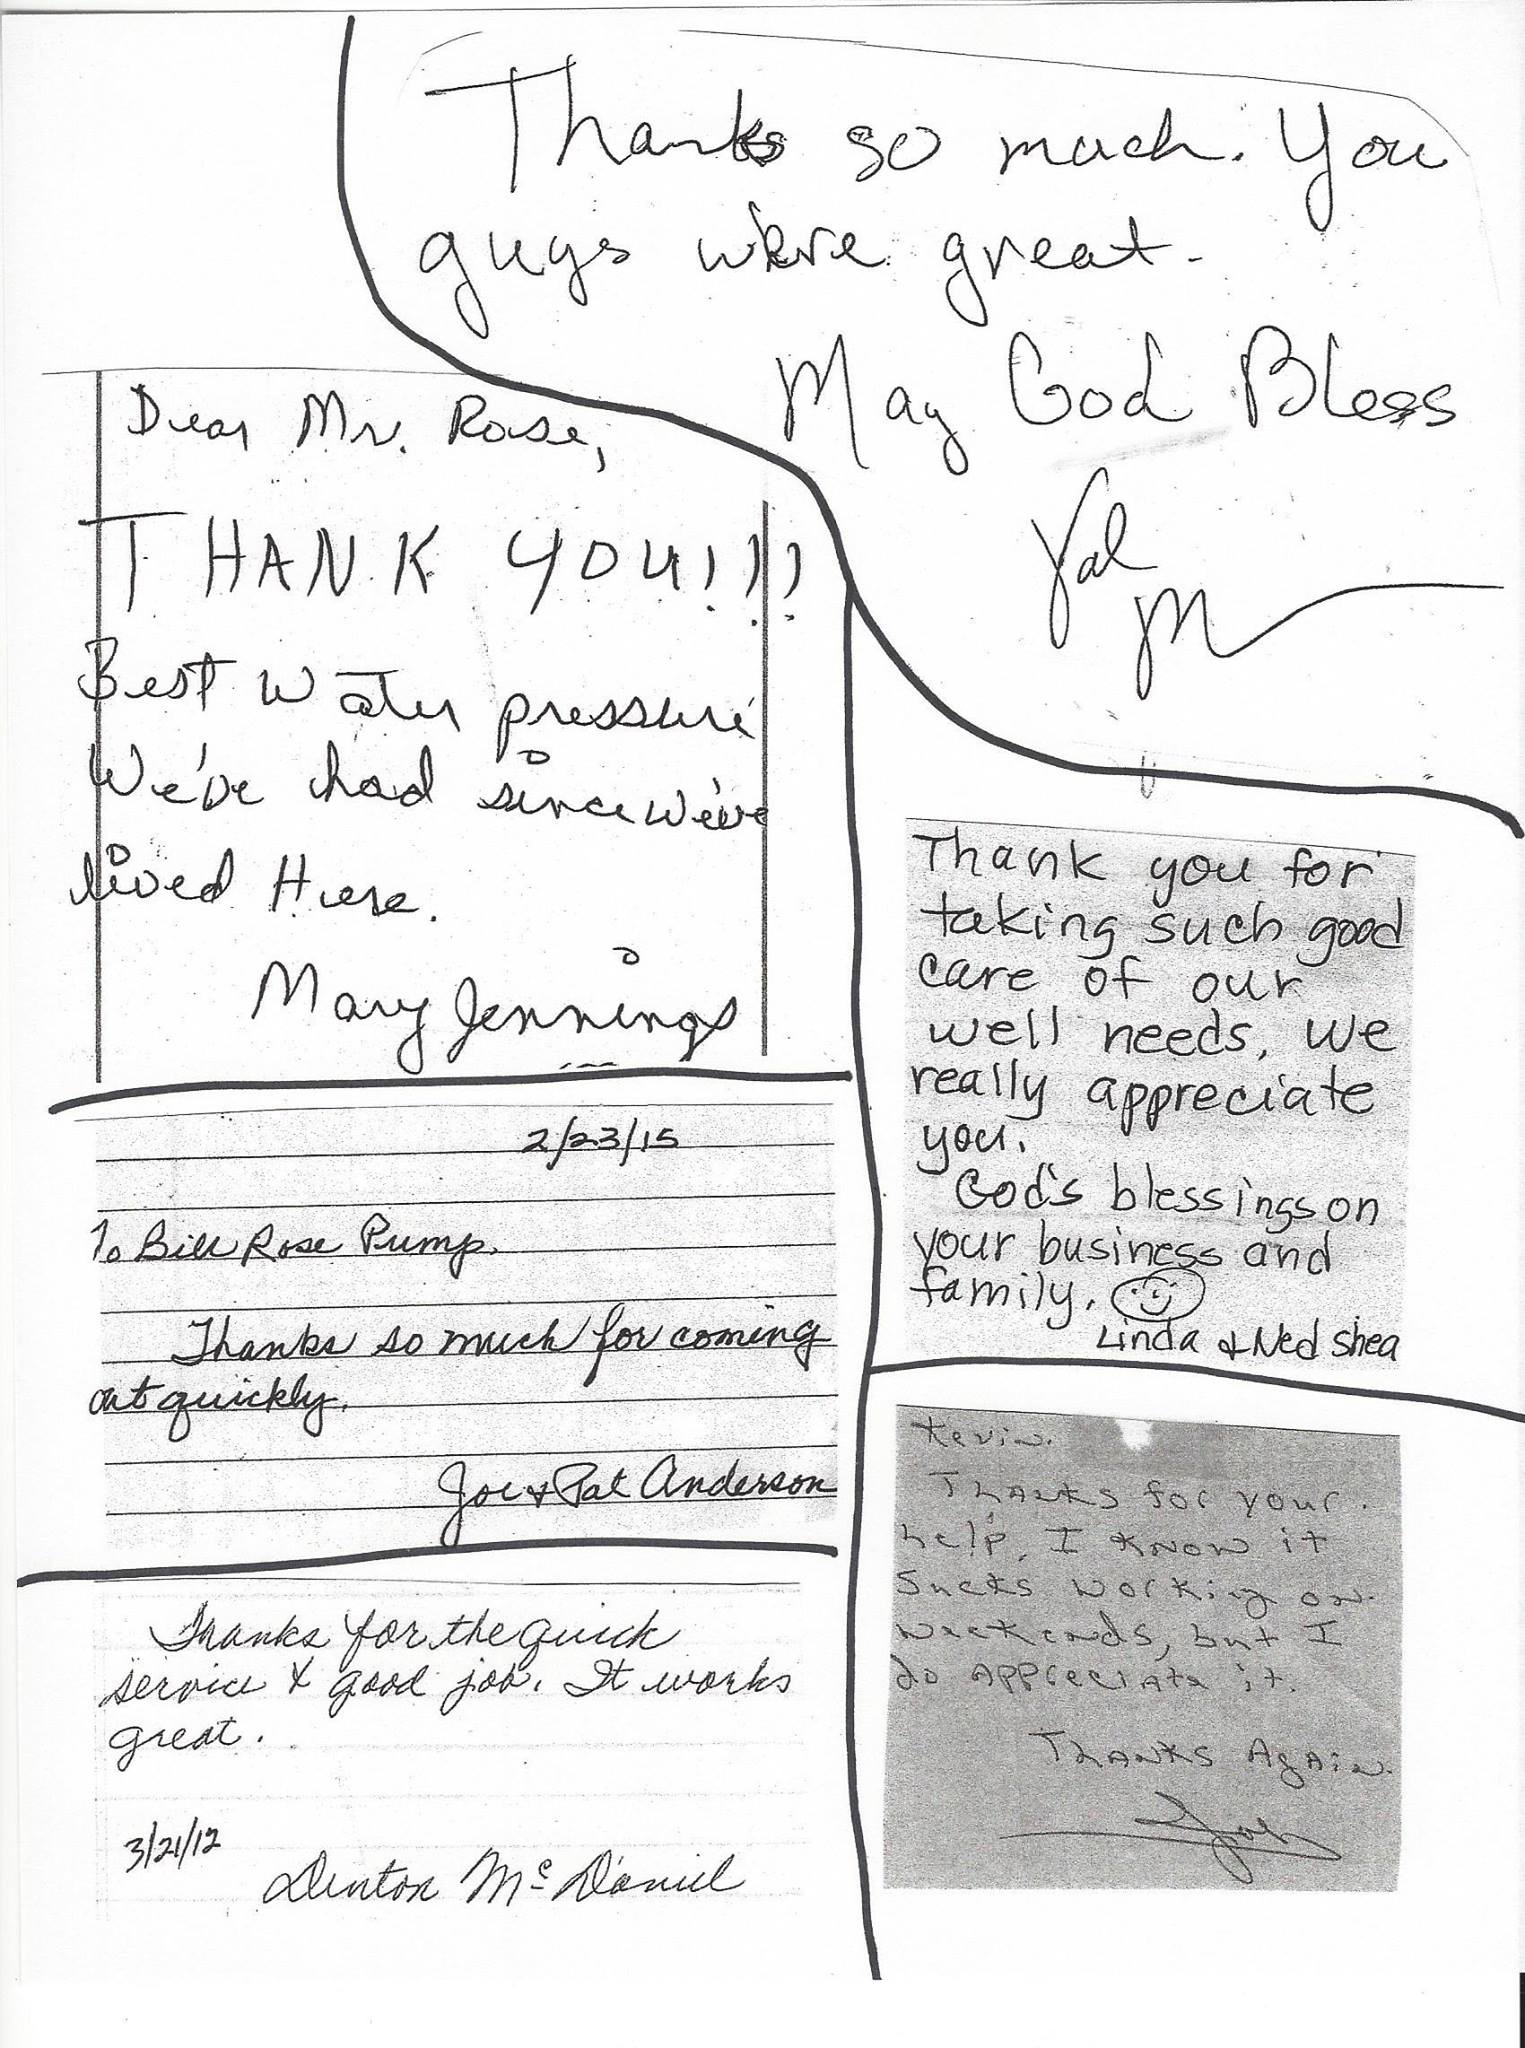 Thanks so much. You
guys were great.
May God Bless
Val
M
Dear Mr. Rose,
THANK YOU!!!
Best Water pressure
We've had since we've
lived Here.
Mary Jennings
2/23/15
To Bill Rose Pump.
Thanks so much for coming
out quickly.
Joe & Pat Anderson
Thanks for the quick
service & good job. It works
great.
3/21/12
Denton McDaniel
Thank you for
taking such good
care of our
well needs, we
really appreciate
you.
God's blessings on
your business and
family.
Linda & Ned Shea
Kevin.
Thanks for your
help, I know it
sucks working on
weekends, but I
do appreciate it.
Thanks Again.